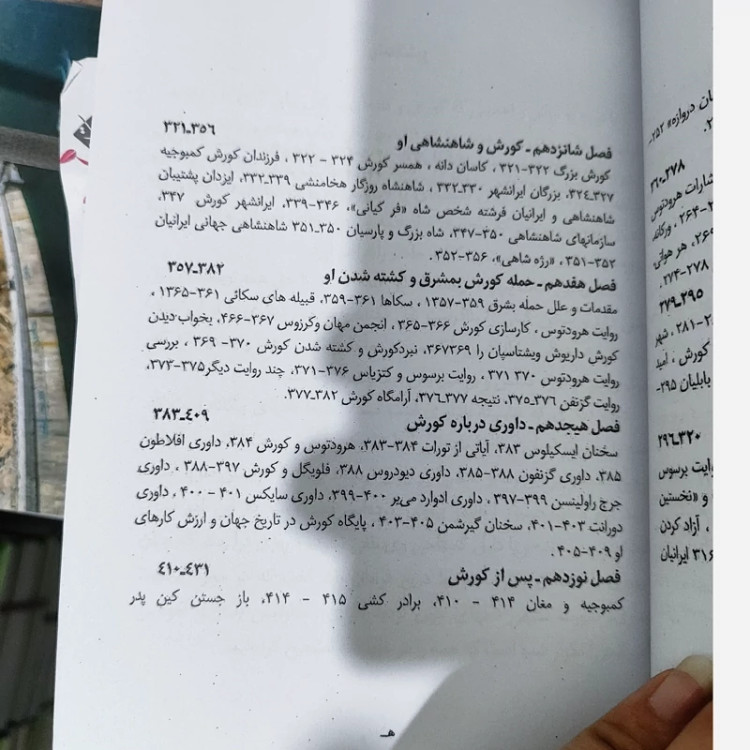 فصل شانزدهم ـ کورش و شاهنشاهی او ۳۵۶ـ۳۲۱
کورش بزرگ ۳۲۲-۳۲۱، کاسان دانه، همسر کورش ۳۲۴ - ۳۲۲، فرزندان کورش کمبوجیه
۳۲۷ـ۳۲٤، بزرگان ایرانشهر ۳۳۰ـ۳۳۲، شاهنشاه روزگار هخامنشی ۳۳۹ـ۳۳۲، ایزدان پشتیبان
شاهنشاهی و ایرانیان فرشته شخص شاه «فر کیانی»، ۳۴۶-۳۳۹، ایرانشهر کورش ۳۴۷،
سازمانهای شاهنشاهی ۳۵۰-۳۴۷، شاه بزرگ و پارسیان ۳۵۰ـ۳۵۱ شاهنشاهی جهانی ایرانیان
۳۵۲-۳۵۱، «رژه شاهی»، ۳۵۶-۳۵۲.
فصل هفدهم ـ حمله کورش بمشرق و کشته شدن او ۳۸۲ـ۳۵۷
مقدمات و علل حمله بشرق ۳۵۹-۱۳۵۷، سکاها ۳۶۱-۳۵۹، قبیله های سکائی ۳۶۱-۱۳۶۵،
روایت هرودتوس، کارسازی کورش ۳۶۶-۳۶۵، انجمن مهان وکرزوس ۳۶۷-۴۶۶، بخواب دیدن
کورش داریوش ویشتاسپان را ۳۶۷۳۶۹، نبردکورش و کشته شدن کورش ۳۷۰- ۳۶۹، بررسی
روایت هرودتوس ۳۷۰ ۳۷۱، روایت برسوس و کتزیاس ۳۷۶-۳۷۱، چند روایت دیگر۳۷۵-۳۷۳،
روایت گزنفن ۳۷۶ـ۳۷۵، نتیجه ۳۷۷ـ۳۷٦، آرامگاه کورش ۳۸۲ـ۳۷۷.
فصل هیجدهم ـ داوری درباره کورش ٤۰۹ـ۳۸۳
سخنان ایسکیلوس ۳۸۳، آیاتی از تورات ۳۸۴-۳۸۳، هرودتوس و کورش ۳۸۴، داوری افلاطون
۳۸۵، داوری گزنفون ۳۸۸-۳۸۵، داوری دیودروس ۳۸۸، فلویگل و کورش ۳۹۷-۳۸۸، داوری
جرج راولینسن ۳۹۹-۳۹۷، داوری ادوارد می‌یر ۴۰۰-۳۹۹، داوری سایکس ۴۰۱ - ۴۰۰، داوری
دورانت ۴۰۳-۴۰۱، سخنان گیرشمن ۴۰۵-۴۰۳، پایگاه کورش در تاریخ جهان و ارزش کارهای
او ۴۰۹-۴۰۵.
فصل نوزدهم ـ پس از کورش ٤۳۱ـ٤۱۰
کمبوجیه و مغان ۴۱۴ - ۴۱۰، برادر کشی ۴۱۵ - ۴۱۴، باز جستن کین پدر
هـ
ان دروازه» ۲۵۲-
۳۷۸
شارات هرودتوس
۲۶۴، ورکانه
هر هوانی
۲۷۸-۲۷۴.
۲۹۵ـ۲۷۹
۲۸۱، شهر
کورش، امید
بابلیان ۲۹۵-
۳۲۰ـ۲۹٦
وایت برسوس
و «نخستین
، آزاد کردن
۳۱۶ ایرانیان